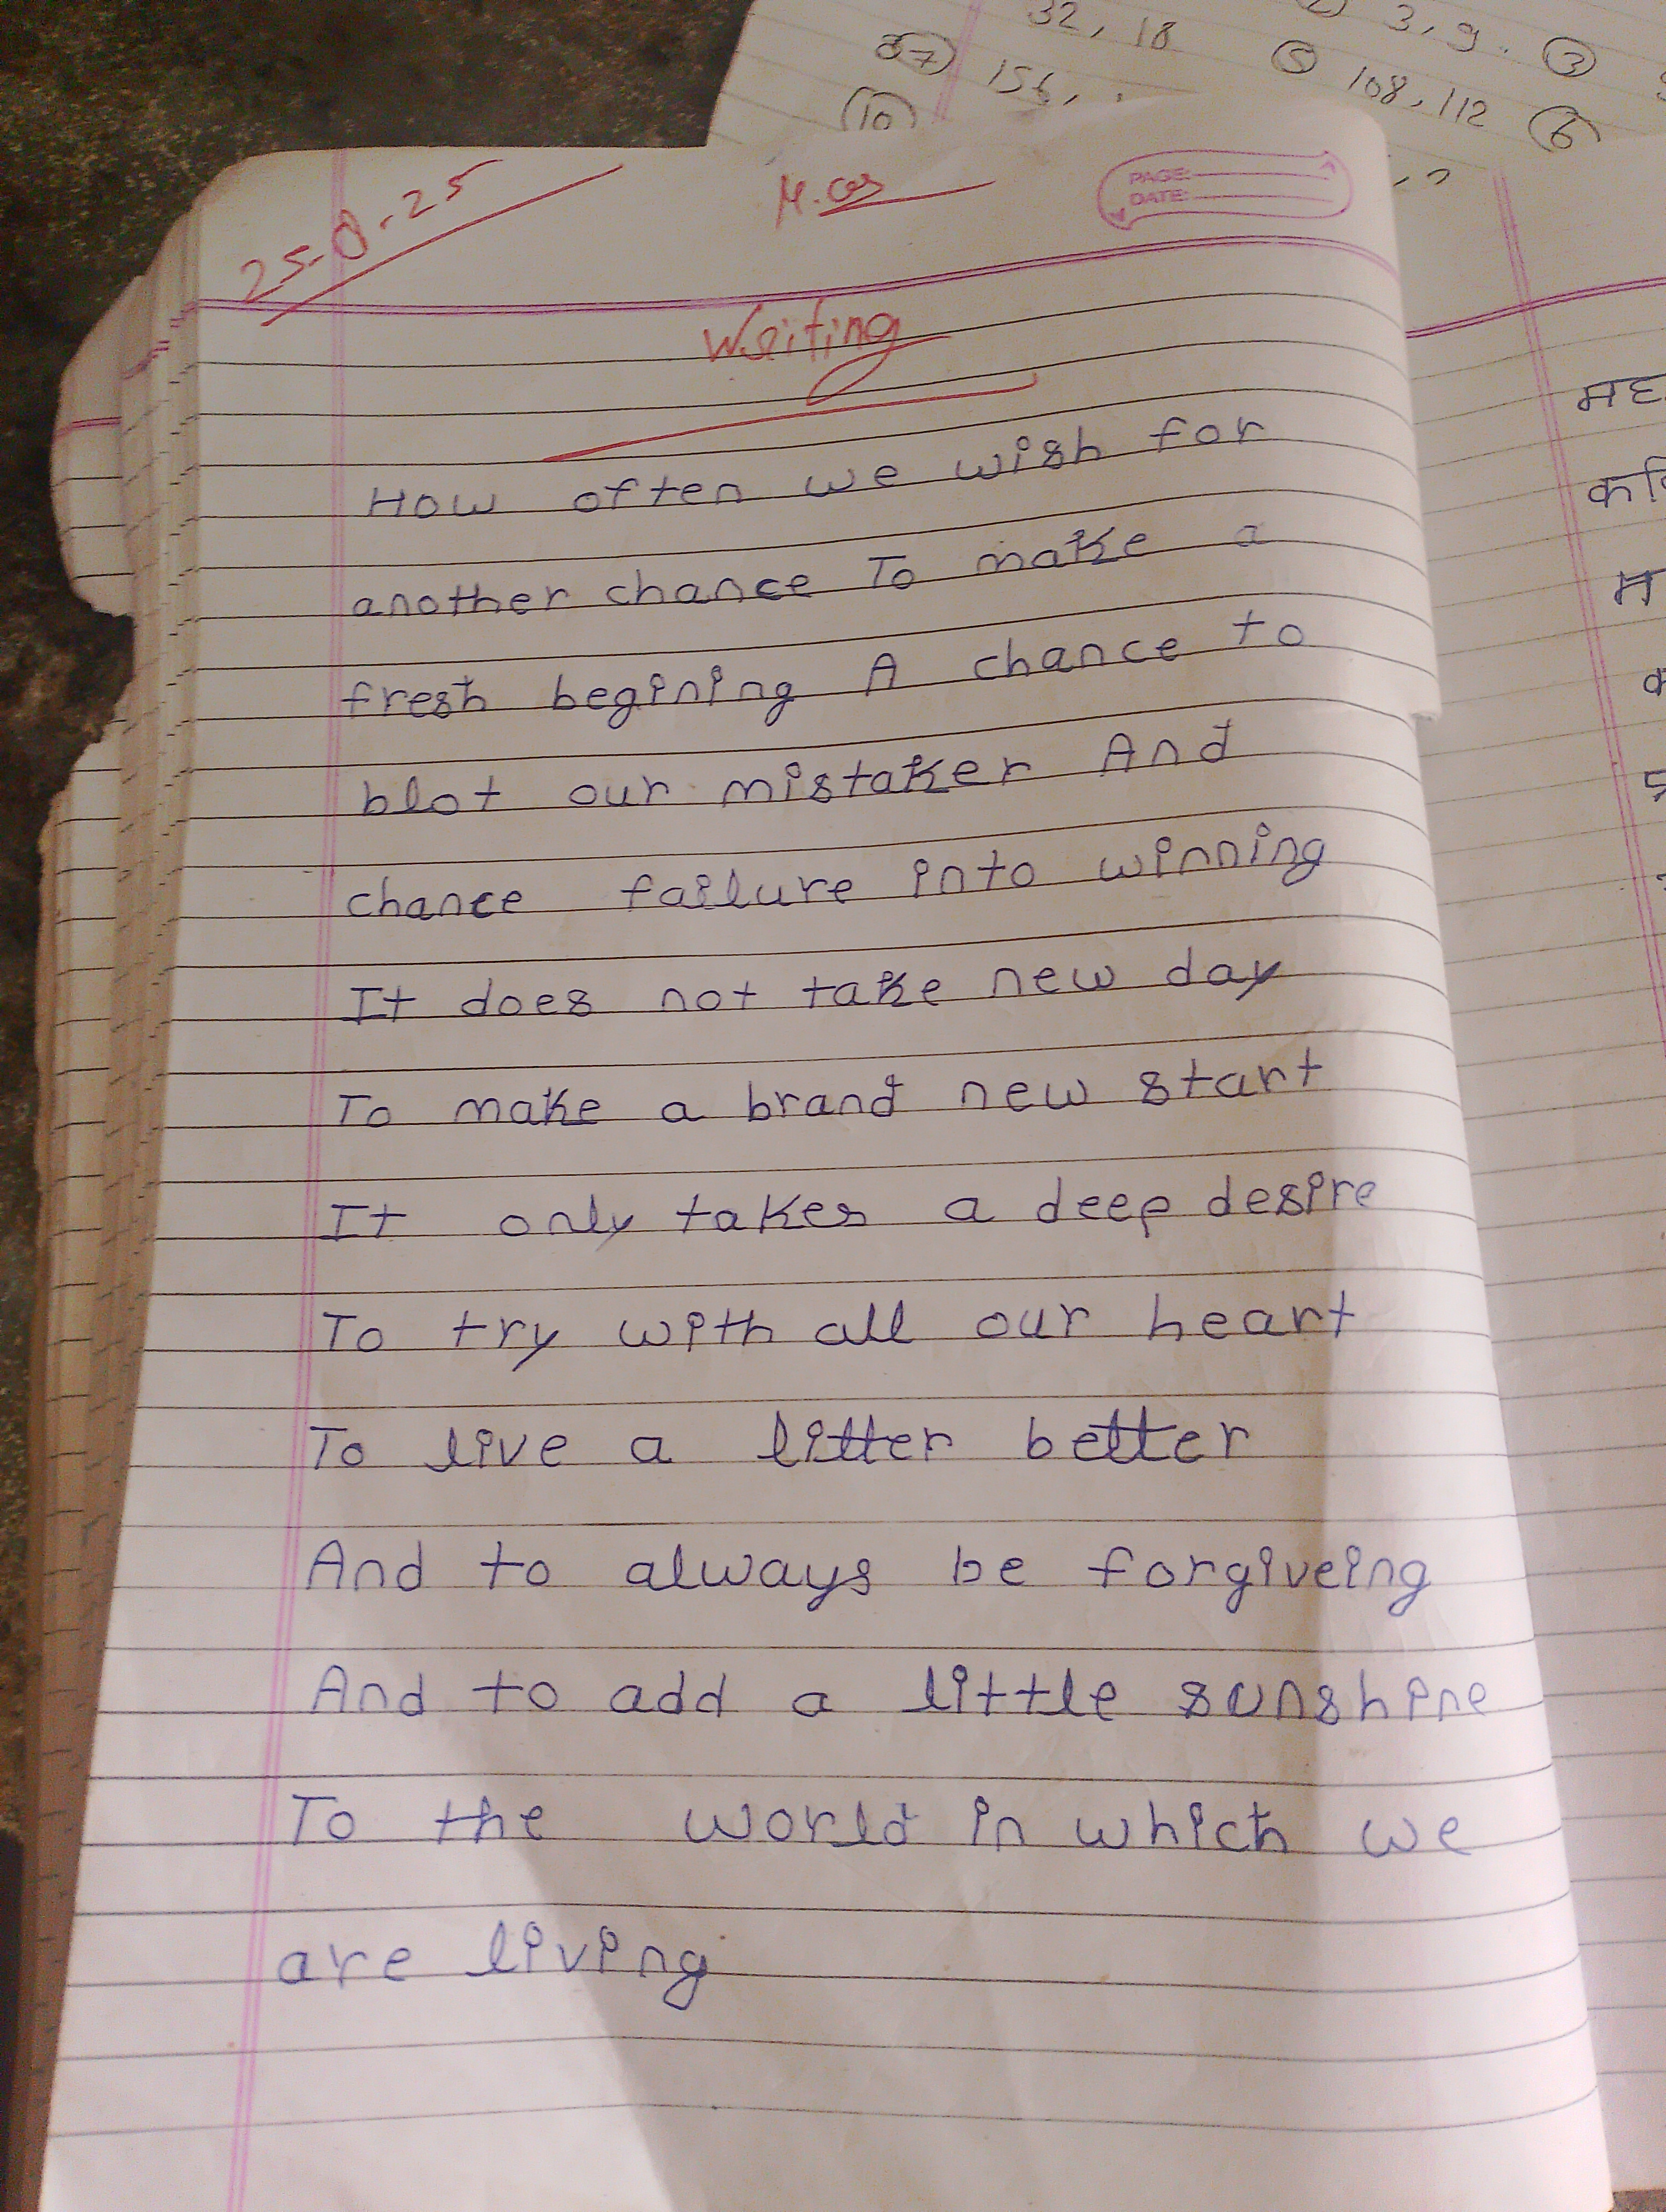 32, 18
3, 9. ③
37 156,
⑤ 108, 112 ⑥
⑩
25-8-25
PAGE:
DATE:
Writing
How often we wish for
another chance To make a
fresh begining A chance to
blot our mistaker And
chance failure into winning
It does not take new day
To make a brand new start
It only takes a deep desire
To try with all our heart
To live a litter better
And to always be forgiveing
And to add a little sunshine
To the world in which we
are living